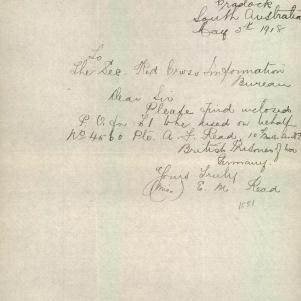 Cradock
South Australia
May 5th 1918
To
The Sec. Red Cross Information
Bureau
Dear Sir
Please find inclosed
P.O. for £1 to be used on behalf
No 4560 Pte. A. F. Read,
British Prisoner of War
Germany.
Yours Truly
(Miss) E. M. Read